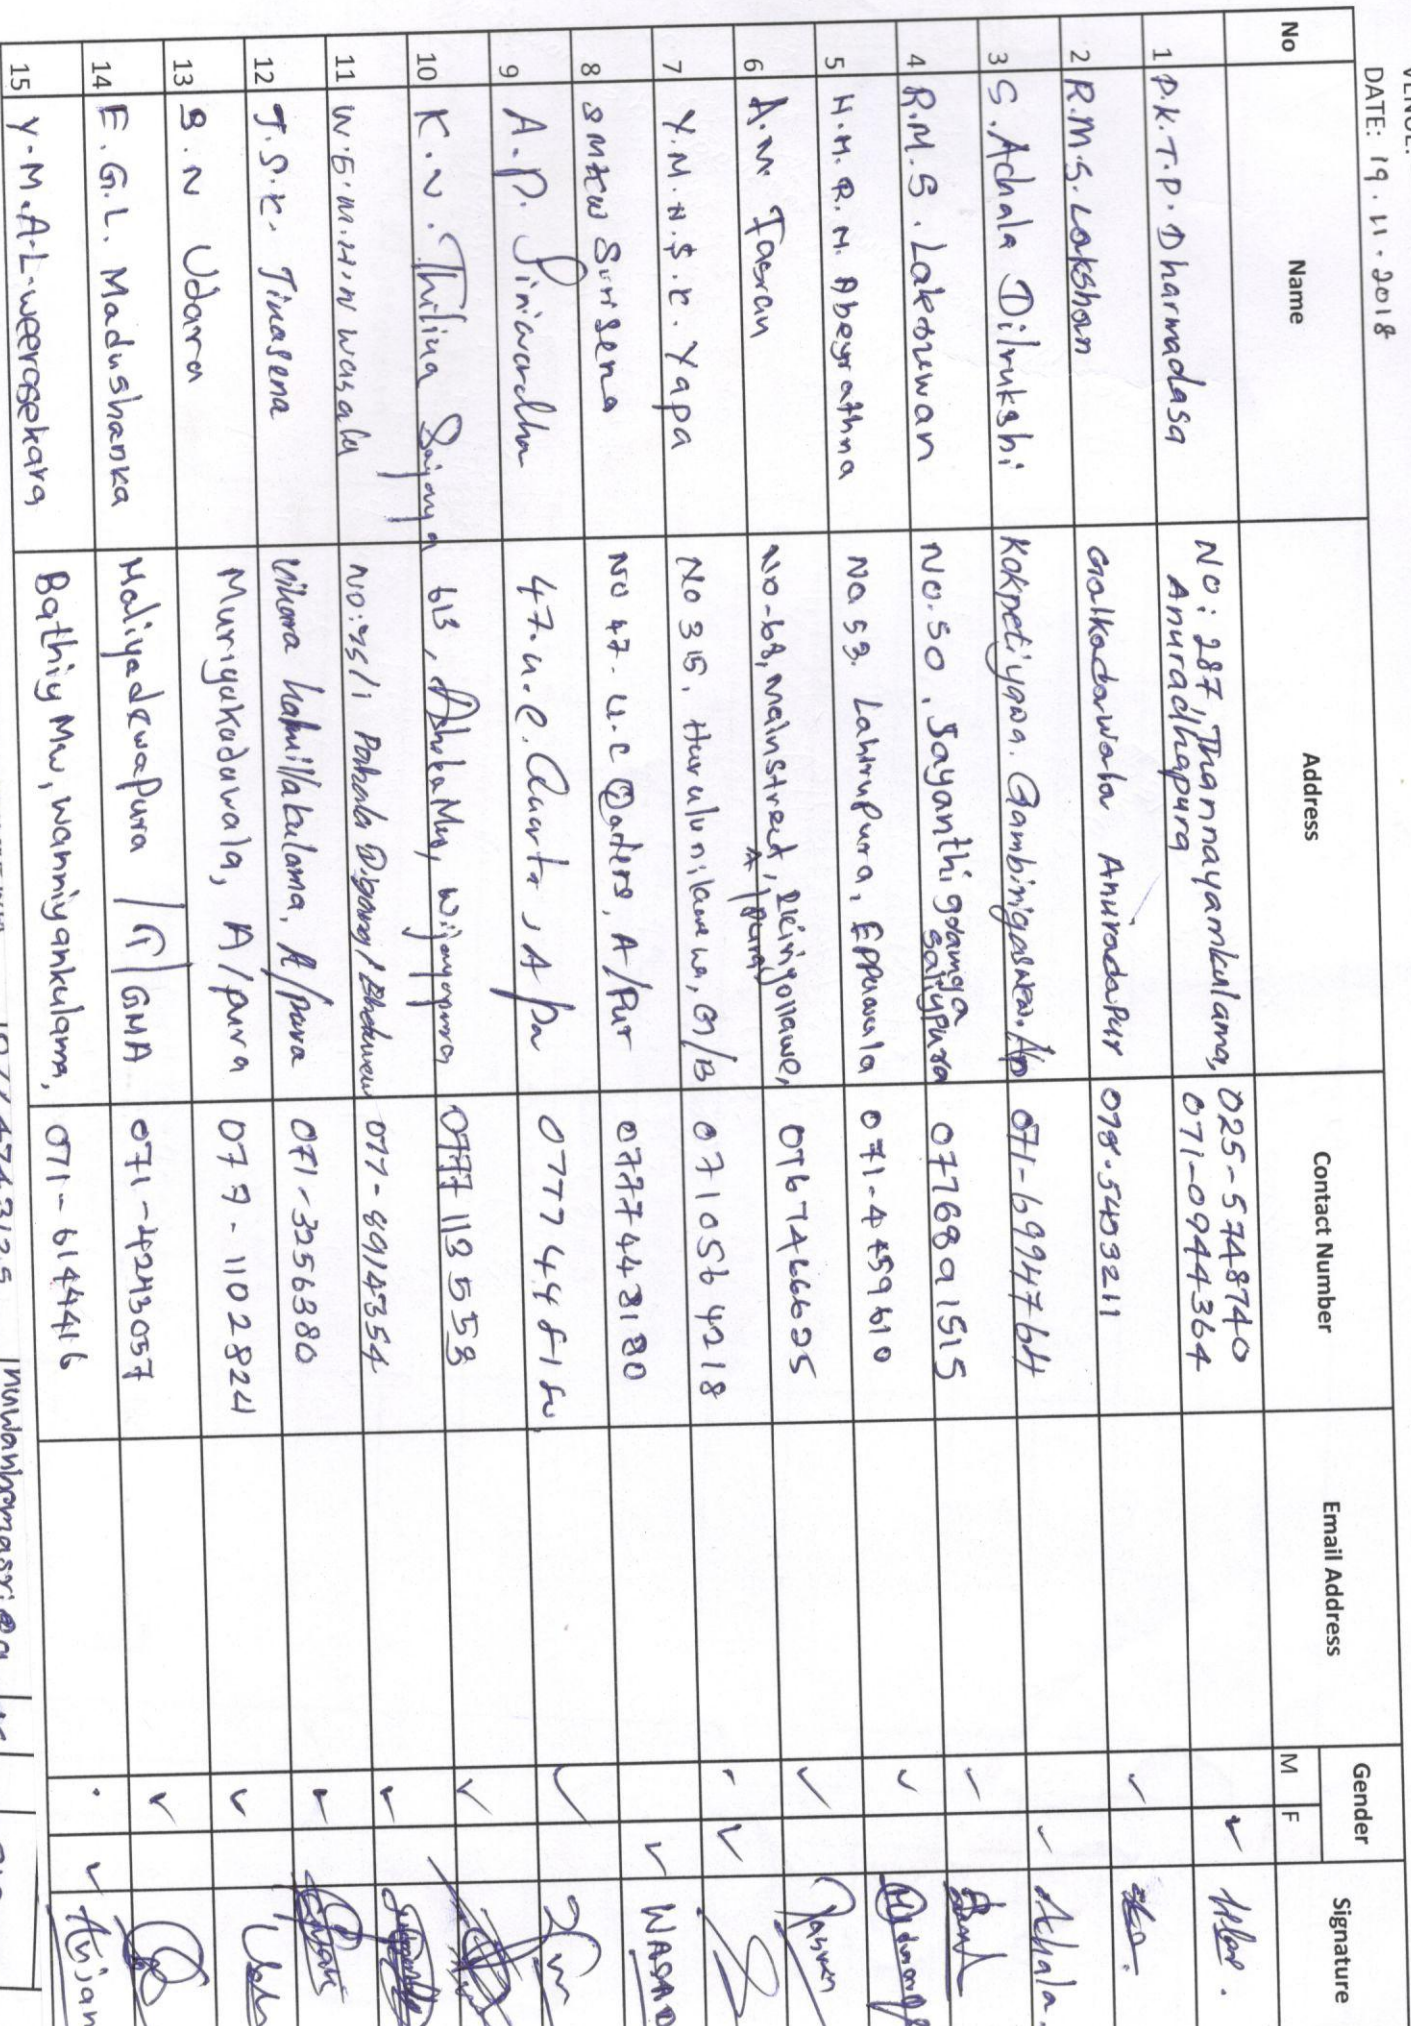 DATE: 19.11.2018
No Name Address Contact Number Email Address Gender Signature
M F
1 P.K.T.P. Dharmadasa No: 287, Thammayamkulama, Anuradhapura 025-5748740
071-0944364
2 R.M.S. Lakshan Galkadawala Anuradapur 078-5403211
3 S. Achala Dilrukshi Kokpetiyawa. Gambirigaswewa. A/p 071-6994764 Achala.
4 R.M.S. Lakruwan No. 50, Jayanthi godamga Saliypura 0776891515
5 H.M.R.M. Abeyrathna No 53. Lahirupura, Eppawala 071-4459610
6 A.M. Fasran No-68, Mainstreet, Ikirigollawe, A/pura 0767466695
7 Y.M.N.S.K. Yapa No 315. Hurulunilawewa, G/B 0710564218
8 SMKW Sirisena No 47. U.C Quters, A/Pur 0777443180
9 A.P. Siriwardha 47. U.C. Quarts, A/pu
10 K.N. Thilina Sajanya 613, Ashoka Mw, Wijayapura 0777113558
11 W.E.M.H.N Wasala No: 75/1 Pahala 077-8914354
12 J.S.K. Jinasena Vihara halmillakulama, A/pura 071-3256380
13 S.N Udara Muriyakaduwala, A/pura 077-1102824
14 E.G.L. Madushanka Maliyadewapura /G/GMA 071-4243057
15 Y.M.A.L. weerasekara Bathiy Mw, wanniyankulama, 071-6144416 Anjan